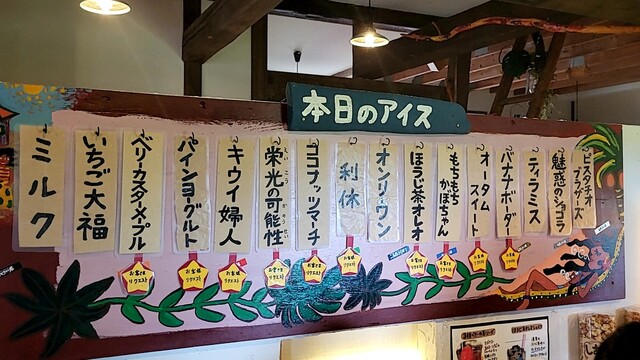 本日のアイス
ピスタチオ
ブラザーズ
魅惑のショコラ
ティラミス
バナナボーダー
オータム
スイート
もちもち
かぼちゃん
ほうじ茶オレオ
オンリーワン
利休
ココナッツマーチ
栄光の可能性
えいこう
かのうせい
キウイ婦人
パインヨーグルト
ベリーカスタメープル
いちご大福
ミルク
お客様
リクエスト
お客様
リクエスト
お客様
リクエスト
お客様
リクエスト
お客様
リクエスト
お客様
リクエスト
お客様
リクエスト